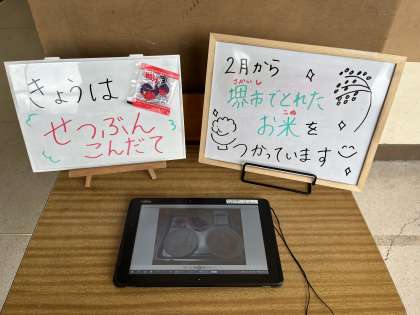 きょうは
せつぶん
こんだて
2月から
さかいし
堺市でとれた
こめ
お米を
つかっています